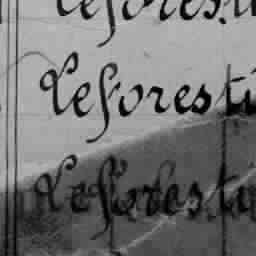 Leforesti
Leforesti
Leforesti